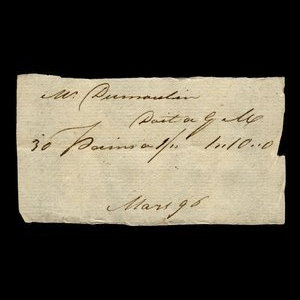 Mr. Dumoulin
Doit a G M
30 Pains a 1/" 1"10"0
Mars 96